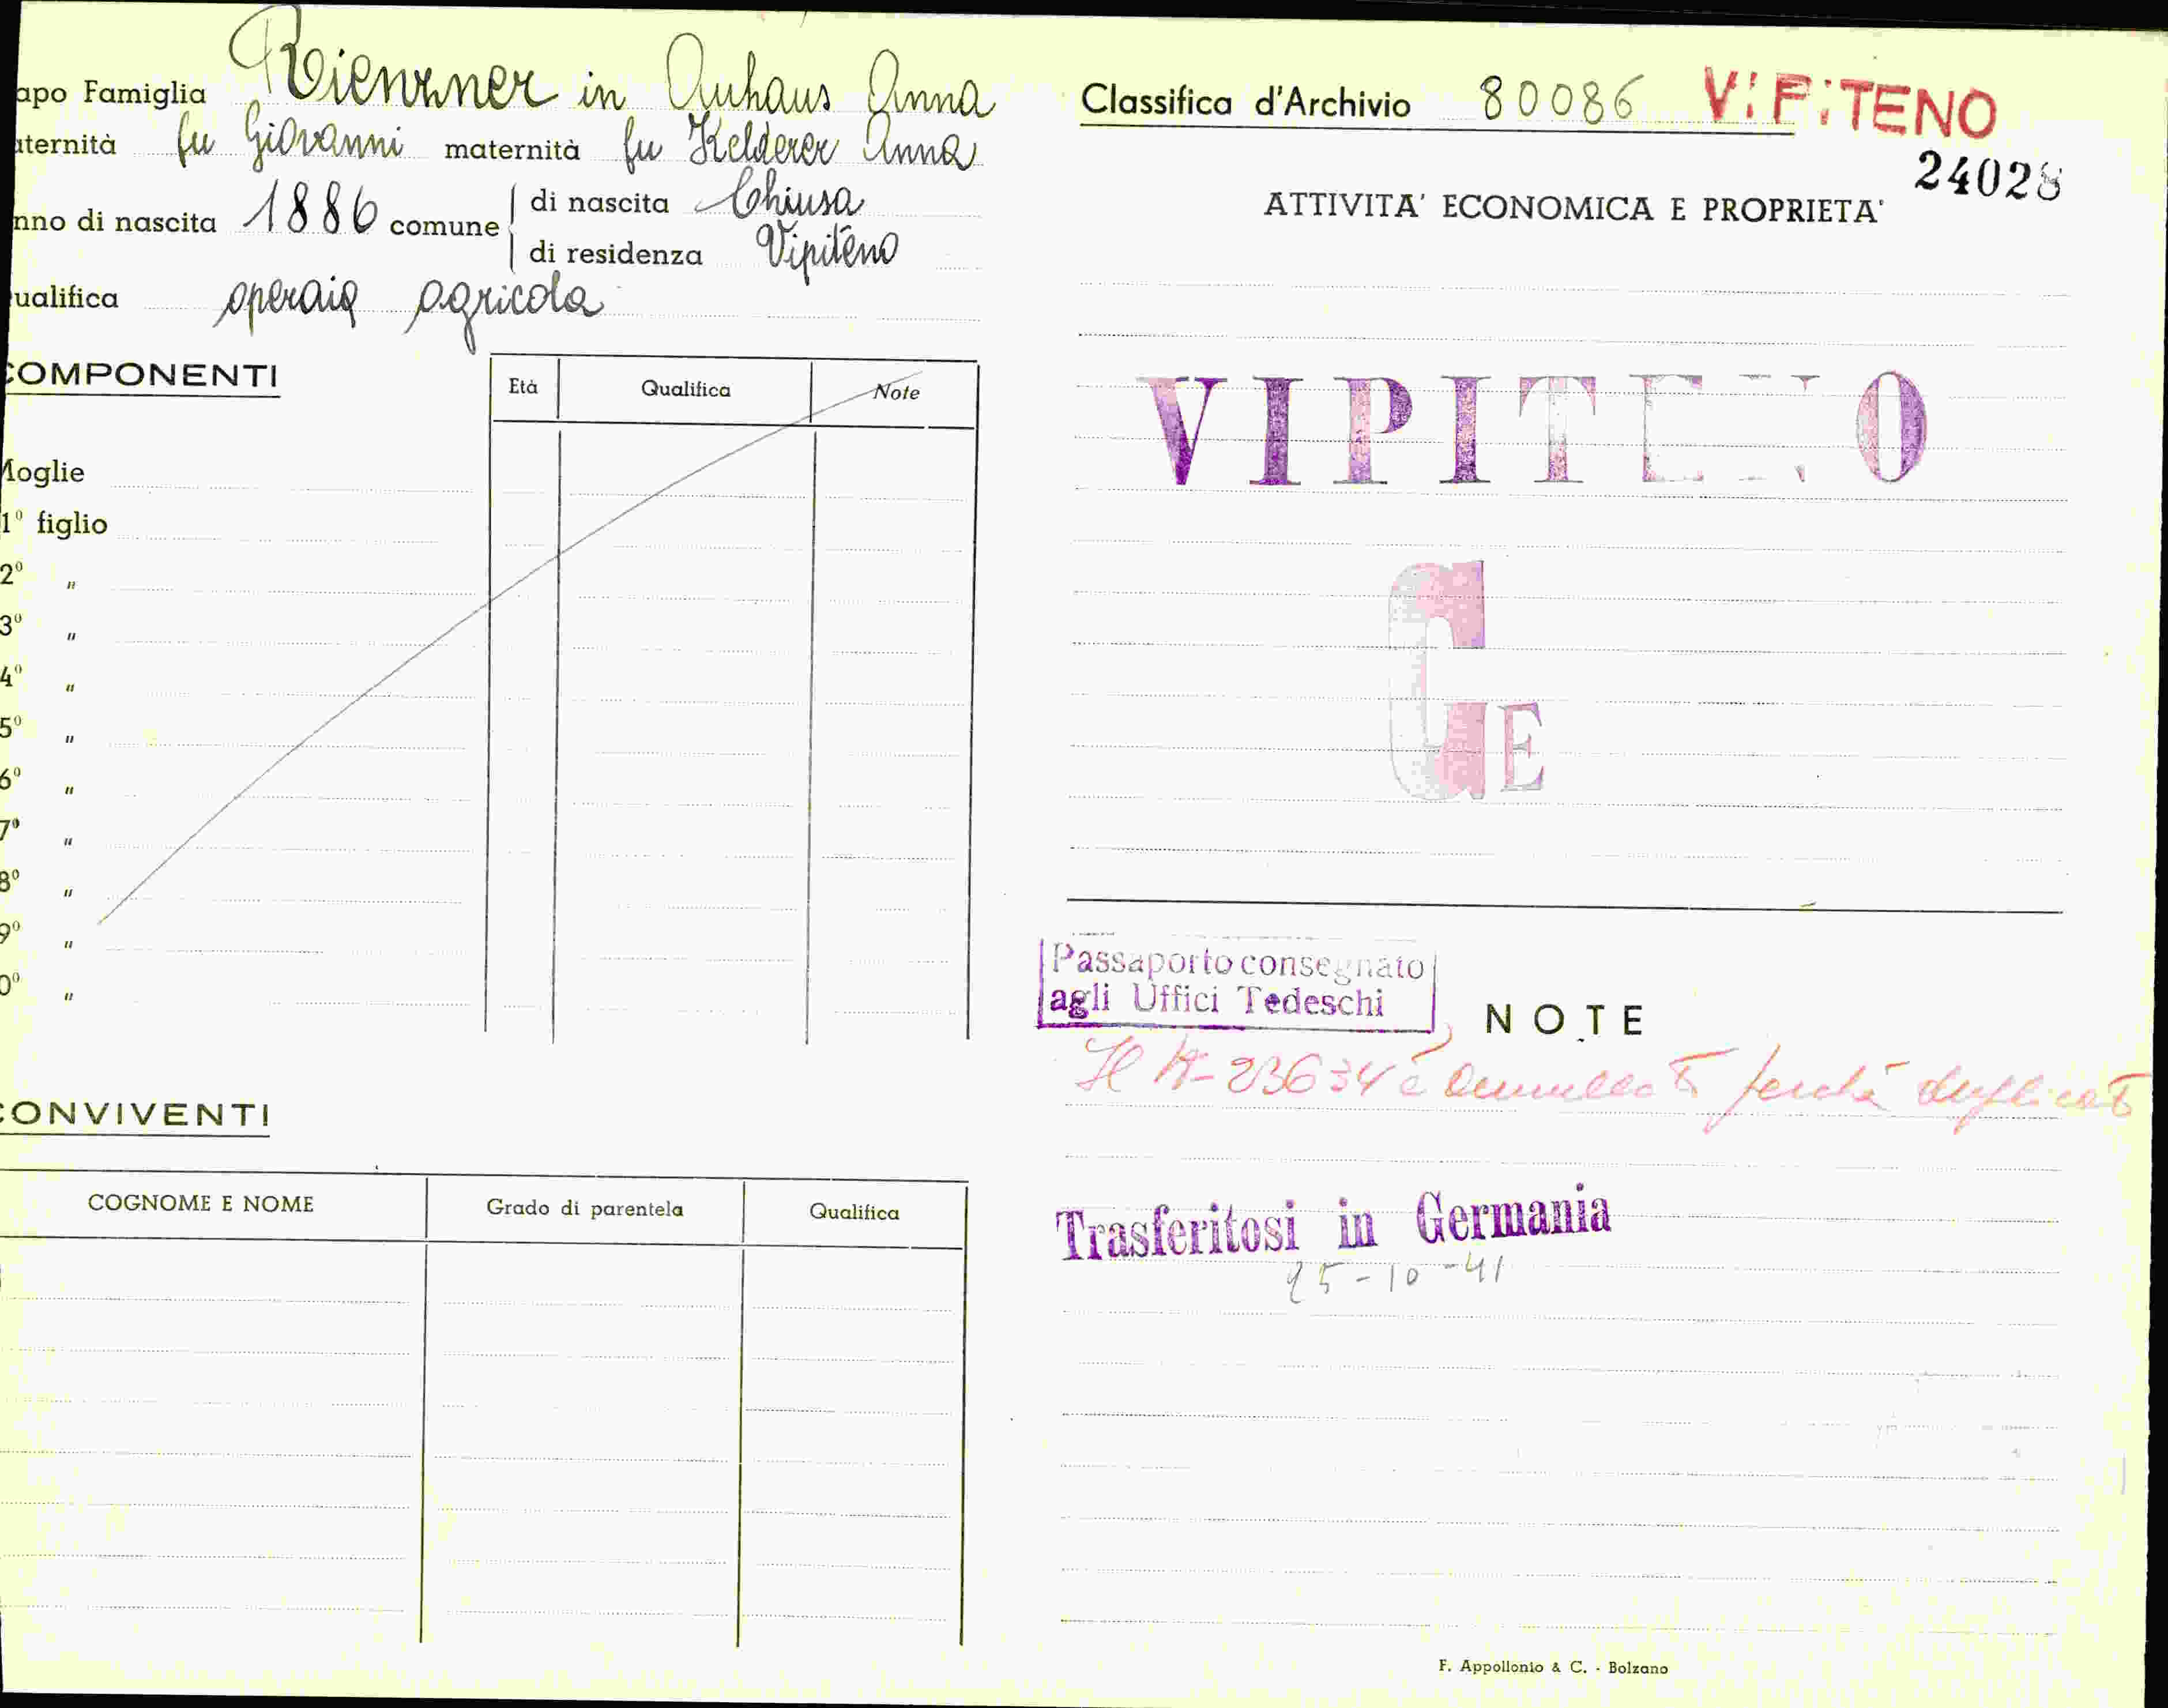 apo Famiglia Rienzner in Auhaus Anna
aternità fu Giovanni maternità fu Kelderer Anna
nno di nascita 1886 comune di nascita Chiusa
di residenza Vipiteno
ualifica operaia agricola
COMPONENTI
Età Qualifica Note
Moglie
1º figlio
2º "
3º "
4º "
5º "
6º "
7º "
8º "
9º "
0º "
CONVIVENTI
COGNOME E NOME Grado di parentela Qualifica
Classifica d'Archivio 80086 VIPITENO
24028
ATTIVITA' ECONOMICA E PROPRIETA'
VIPITENO
G
E
Passaporto consegnato
agli Uffici Tedeschi
NOTE
Il N- 23634 è annullato perchè duplicato
Trasferitosi in Germania
25-10-41
F. Appollonio & C. - Bolzano